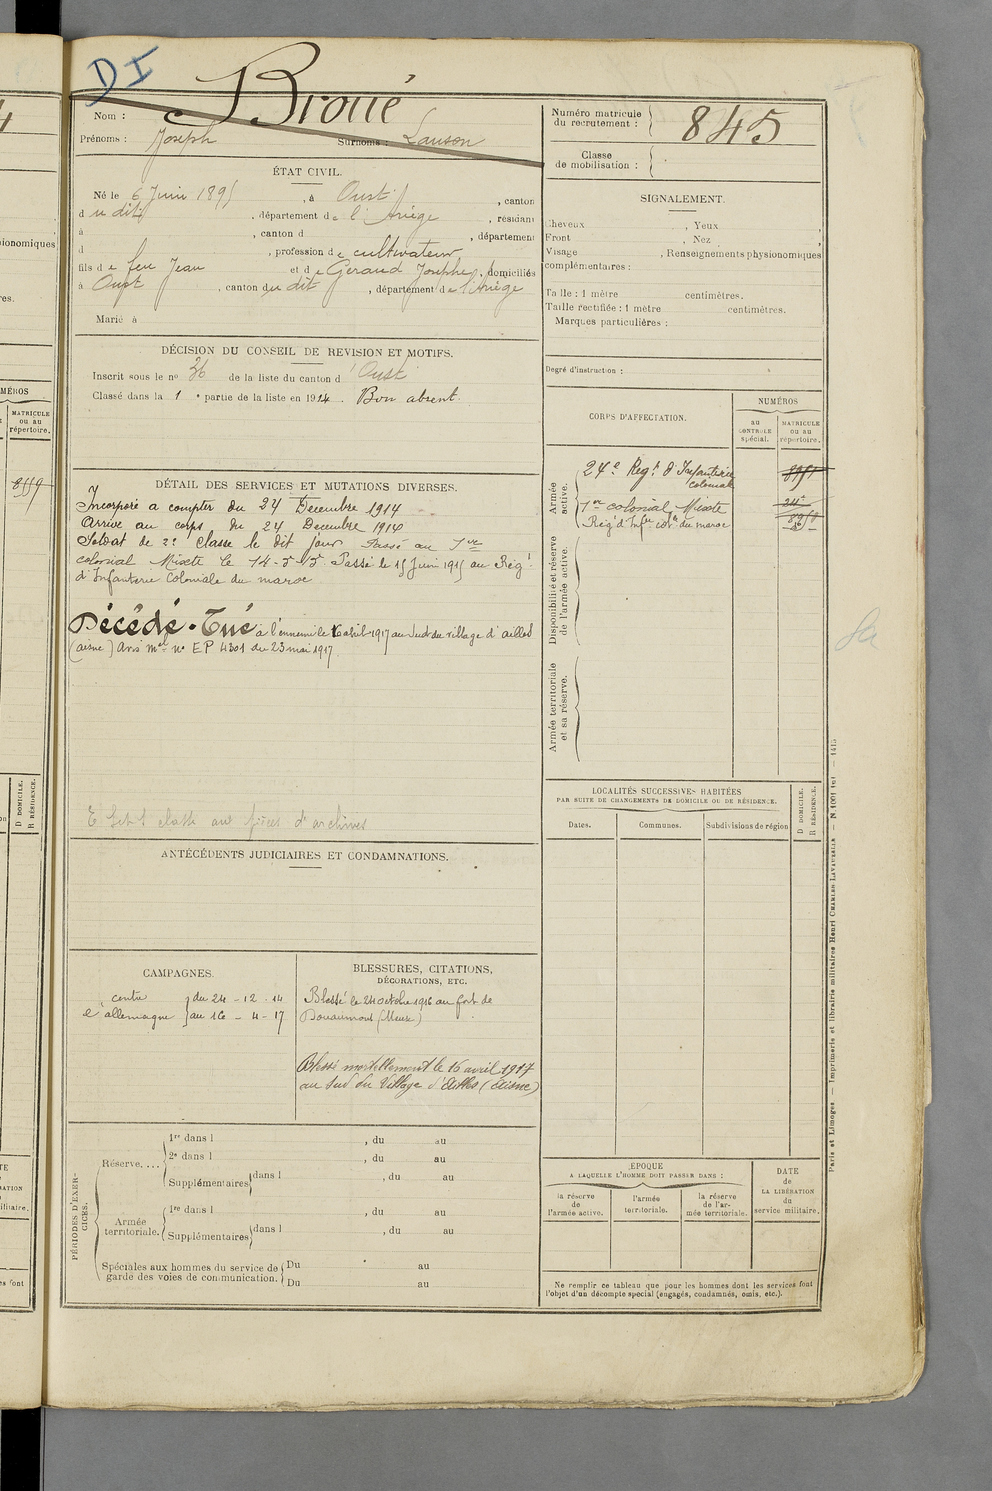 DI
Broué
Nom :
Prénoms : Joseph Surnoms : Lauson
Numéro matricule
du recrutement : 845
Classe
de mobilisation :
ÉTAT CIVIL.
Né le 6 Juin 1895, à Oust, canton
du dit, département de l'Ariège, résidant
à , canton d , département
d , profession de cultivateur
fils de feu Jean et de Geraud Josephe, domiciliés
à Oust, canton du dit, département de l'Ariège
Marié à
SIGNALEMENT.
Cheveux , Yeux
Front , Nez
Visage , Renseignements physionomiques
complémentaires :
Taille : 1 mètre centimètres.
Taille rectifiée : 1 mètre centimètres.
Marques particulières :
Degré d'instruction :
DÉCISION DU CONSEIL DE REVISION ET MOTIFS.
Inscrit sous le no 36 de la liste du canton d'Oust
Classé dans la 1e partie de la liste en 1914. Bon absent.
CORPS D'AFFECTATION.
NUMÉROS
au
CONTROLE
spécial.
MATRICULE
ou au
répertoire.
Armée
active.
24e Regt d'Infanterie
coloniale
1er colonial Mixte
Rég. d'Infie colle du maroc
Disponibilité et réserve
de l'armée active.
Armée territoriale
et sa réserve.
DÉTAIL DES SERVICES ET MUTATIONS DIVERSES.
Incorporé a compter du 24 Decembre 1914
Arrivé au corps du 24 Decembre 1914
Soldat de 2e classe le dit jour Passé au 1er
colonial Mixte le 14-5-15. Passé le 15 Juin 1915 au Régt
d'Infanterie Coloniale du maroc
Décédé - Tué à l'ennemi le 16 avril 1917 au Sud du village d'ailles
(aisne) Avis mel no EP 4301 du 23 mai 1917
classé aux pièces d'archives
LOCALITÉS SUCCESSIVES HABITÉES
PAR SUITE DE CHANGEMENTS DE DOMICILE OU DE RÉSIDENCE.
D DOMICILE.
R RÉSIDENCE.
Dates. Communes. Subdivisions de région
ANTÉCÉDENTS JUDICIAIRES ET CONDAMNATIONS.
CAMPAGNES.
contre
l'allemagne
du 24 - 12 - 14
au 16 - 4 - 17
BLESSURES, CITATIONS,
DÉCORATIONS, ETC.
Blessé le 24 octobre 1916 au fort de
Douaumont (Meuse)
Blessé mortellement le 16 avril 1917
au Sud du Village d'Ailles (Aisne)
PÉRIODES D'EXER-
CICES.
Réserve....
1re dans l , du au
2e dans l , du au
Supplémentaires dans l , du au
Armée
territoriale.
1re dans l , du au
Supplémentaires dans l , du au
Spéciales aux hommes du service de
garde des voies de communication.
Du au
Du au
ÉPOQUE
A LAQUELLE L'HOMME DOIT PASSER DANS :
la réserve
de
l'armée active.
l'armée
territoriale.
la réserve
de l'ar-
mée territoriale.
DATE
de
LA LIBÉRATION
du
service militaire.
Ne remplir ce tableau que pour les hommes dont les services font
l'objet d'un décompte spécial (engagés, condamnés, omis, etc.).
Paris et Limoges. — Imprimerie et librairie militaires Henri CHARLES-LAVAUZELLE